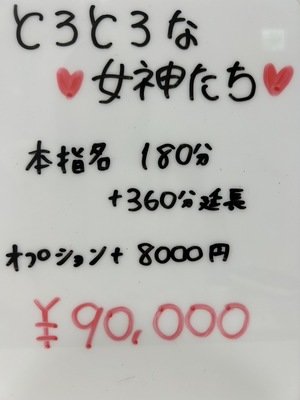 とろとろな
♥女神たち♥
本指名 180分
+360分延長
オプション+ 8000円
¥90,000